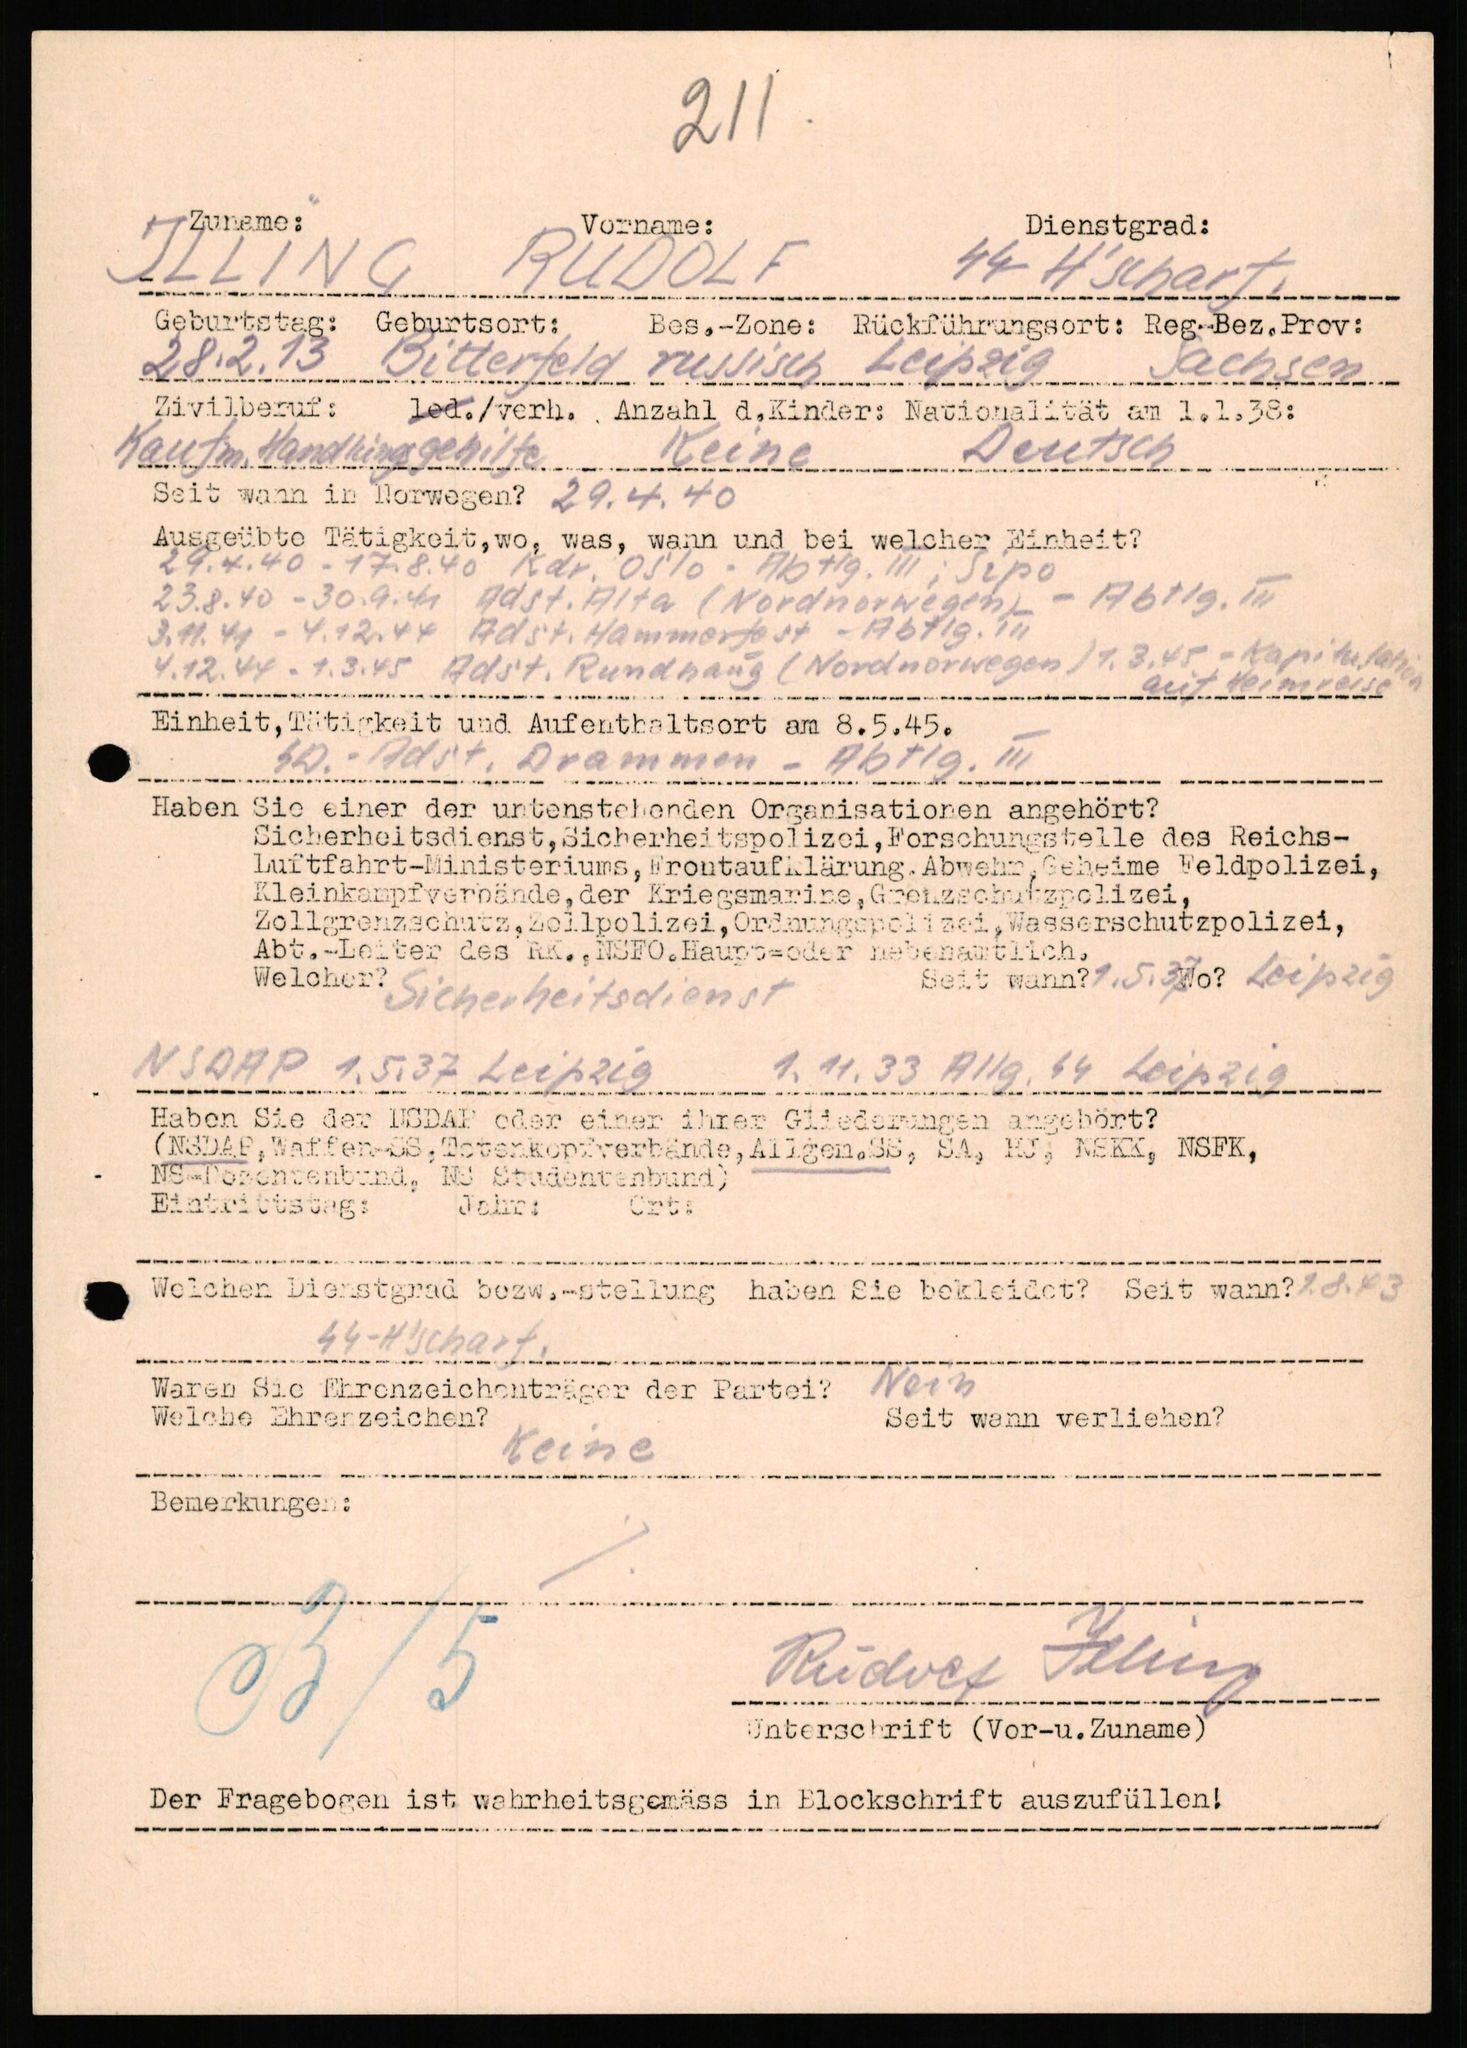 211
Zuname: Vorname: Dienstgrad:
ILLING RUDOLF SS H'scharf.
Geburtstag: Geburtsort: Bes.-Zone: Rückführungsort: Reg-Bez.Prov:
28.2.13 Bitterfeld russisch Leipzig Sachsen
Zivilberuf: led./verh. Anzahl d.Kinder: Nationalität am 1.1.38:
Kaufm. Handlungsgehilfe Keine Deutsch
Seit wann in Norwegen? 29.4.40
Ausgeübte Tätigkeit,wo, was, wann und bei welcher Einheit?
29.4.40 - 17.8.40 Kdr. Oslo - Abtlg. III, Sipo
23.8.40 - 30.9.41 Adst. Alta (Nordnorwegen) - Abtlg. III
3.11.41 - 4.12.44 Adst. Hammerfest - Abtlg. III
4.12.44 - 1.3.45 Adst. Rundhaug (Nordnorwegen) 1.3.45 - Kapitulation
auf Heimreise
Einheit,Tätigkeit und Aufenthaltsort am 8.5.45.
SD.-Adst. Drammen - Abtlg. III
Haben Sie einer der untenstehenden Organisationen angehört?
Sicherheitsdienst,Sicherheitspolizei,Forschungstelle des Reichs-
Luftfahrt-Ministeriums,Frontaufklärung.Abwehr,Geheime Feldpolizei,
Kleinkampfverbände,der Kriegsmarine,Grenzschutzpolizei,
Zollgrenzschutz,Zollpolizei,Ordnungspolizei,Wasserschutzpolizei,
Abt.-Leiter des RK.,NSFO.Haupt=oder nebenamtlich.
Welcher? Sicherheitsdienst Seit wann? 1.5.37 Wo? Leipzig
NSDAP 1.5.37 Leipzig 1.11.33 Allg. SS Leipzig
Haben Sie der NSDAP oder einer ihrer Gliederungen angehört?
(NSDAP,Waffen-SS,Totenkopfverbände,Allgem.SS, SA, HJ, NSKK, NSFK,
NS-Dozentenbund, NS Studentenbund)
Eintrittstag: Jahr: Ort:
Welchen Dienstgrad bezw.-stellung haben Sie bekleidet? Seit wann? 1.8.43
SS-H'scharf.
Waren Sie Ehrenzeichenträger der Partei? Nein
Welche Ehrenzeichen? Seit wann verliehen?
Keine
Bemerkungen:
B/5
Rudolf Illing
Unterschrift (Vor-u.Zuname)
Der Fragebogen ist wahrheitsgemäss in Blockschrift auszufüllen!